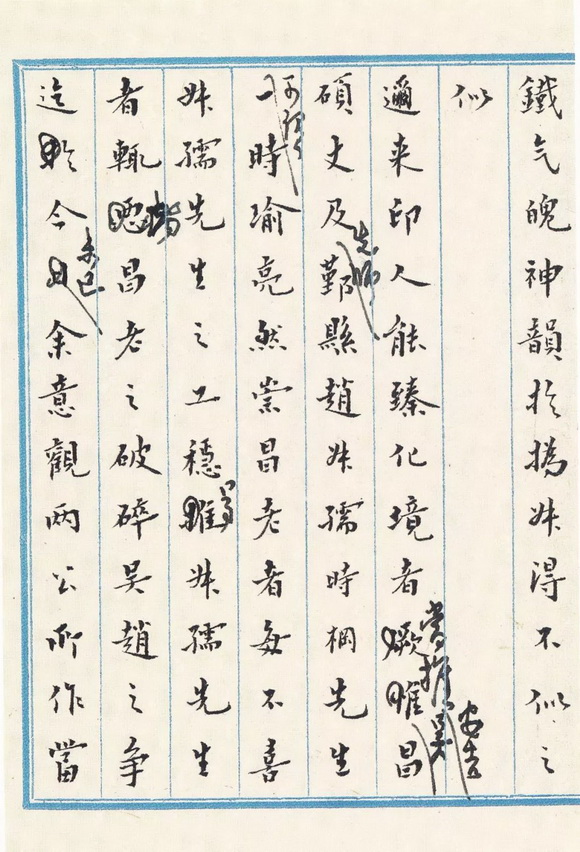 鐵气魄神韻於撝叔得不似之
似
邇来印人能臻化境者厥唯昌
當推吳
安吉
碩丈及鄞縣趙叔孺時棡先生
先師
一時瑜亮然崇昌老者每不喜
可稱
叔孺先生之工穩雖叔孺先生
者輒昌老之破碎吳趙之争
迄於今日余意觀两公所作當
未已